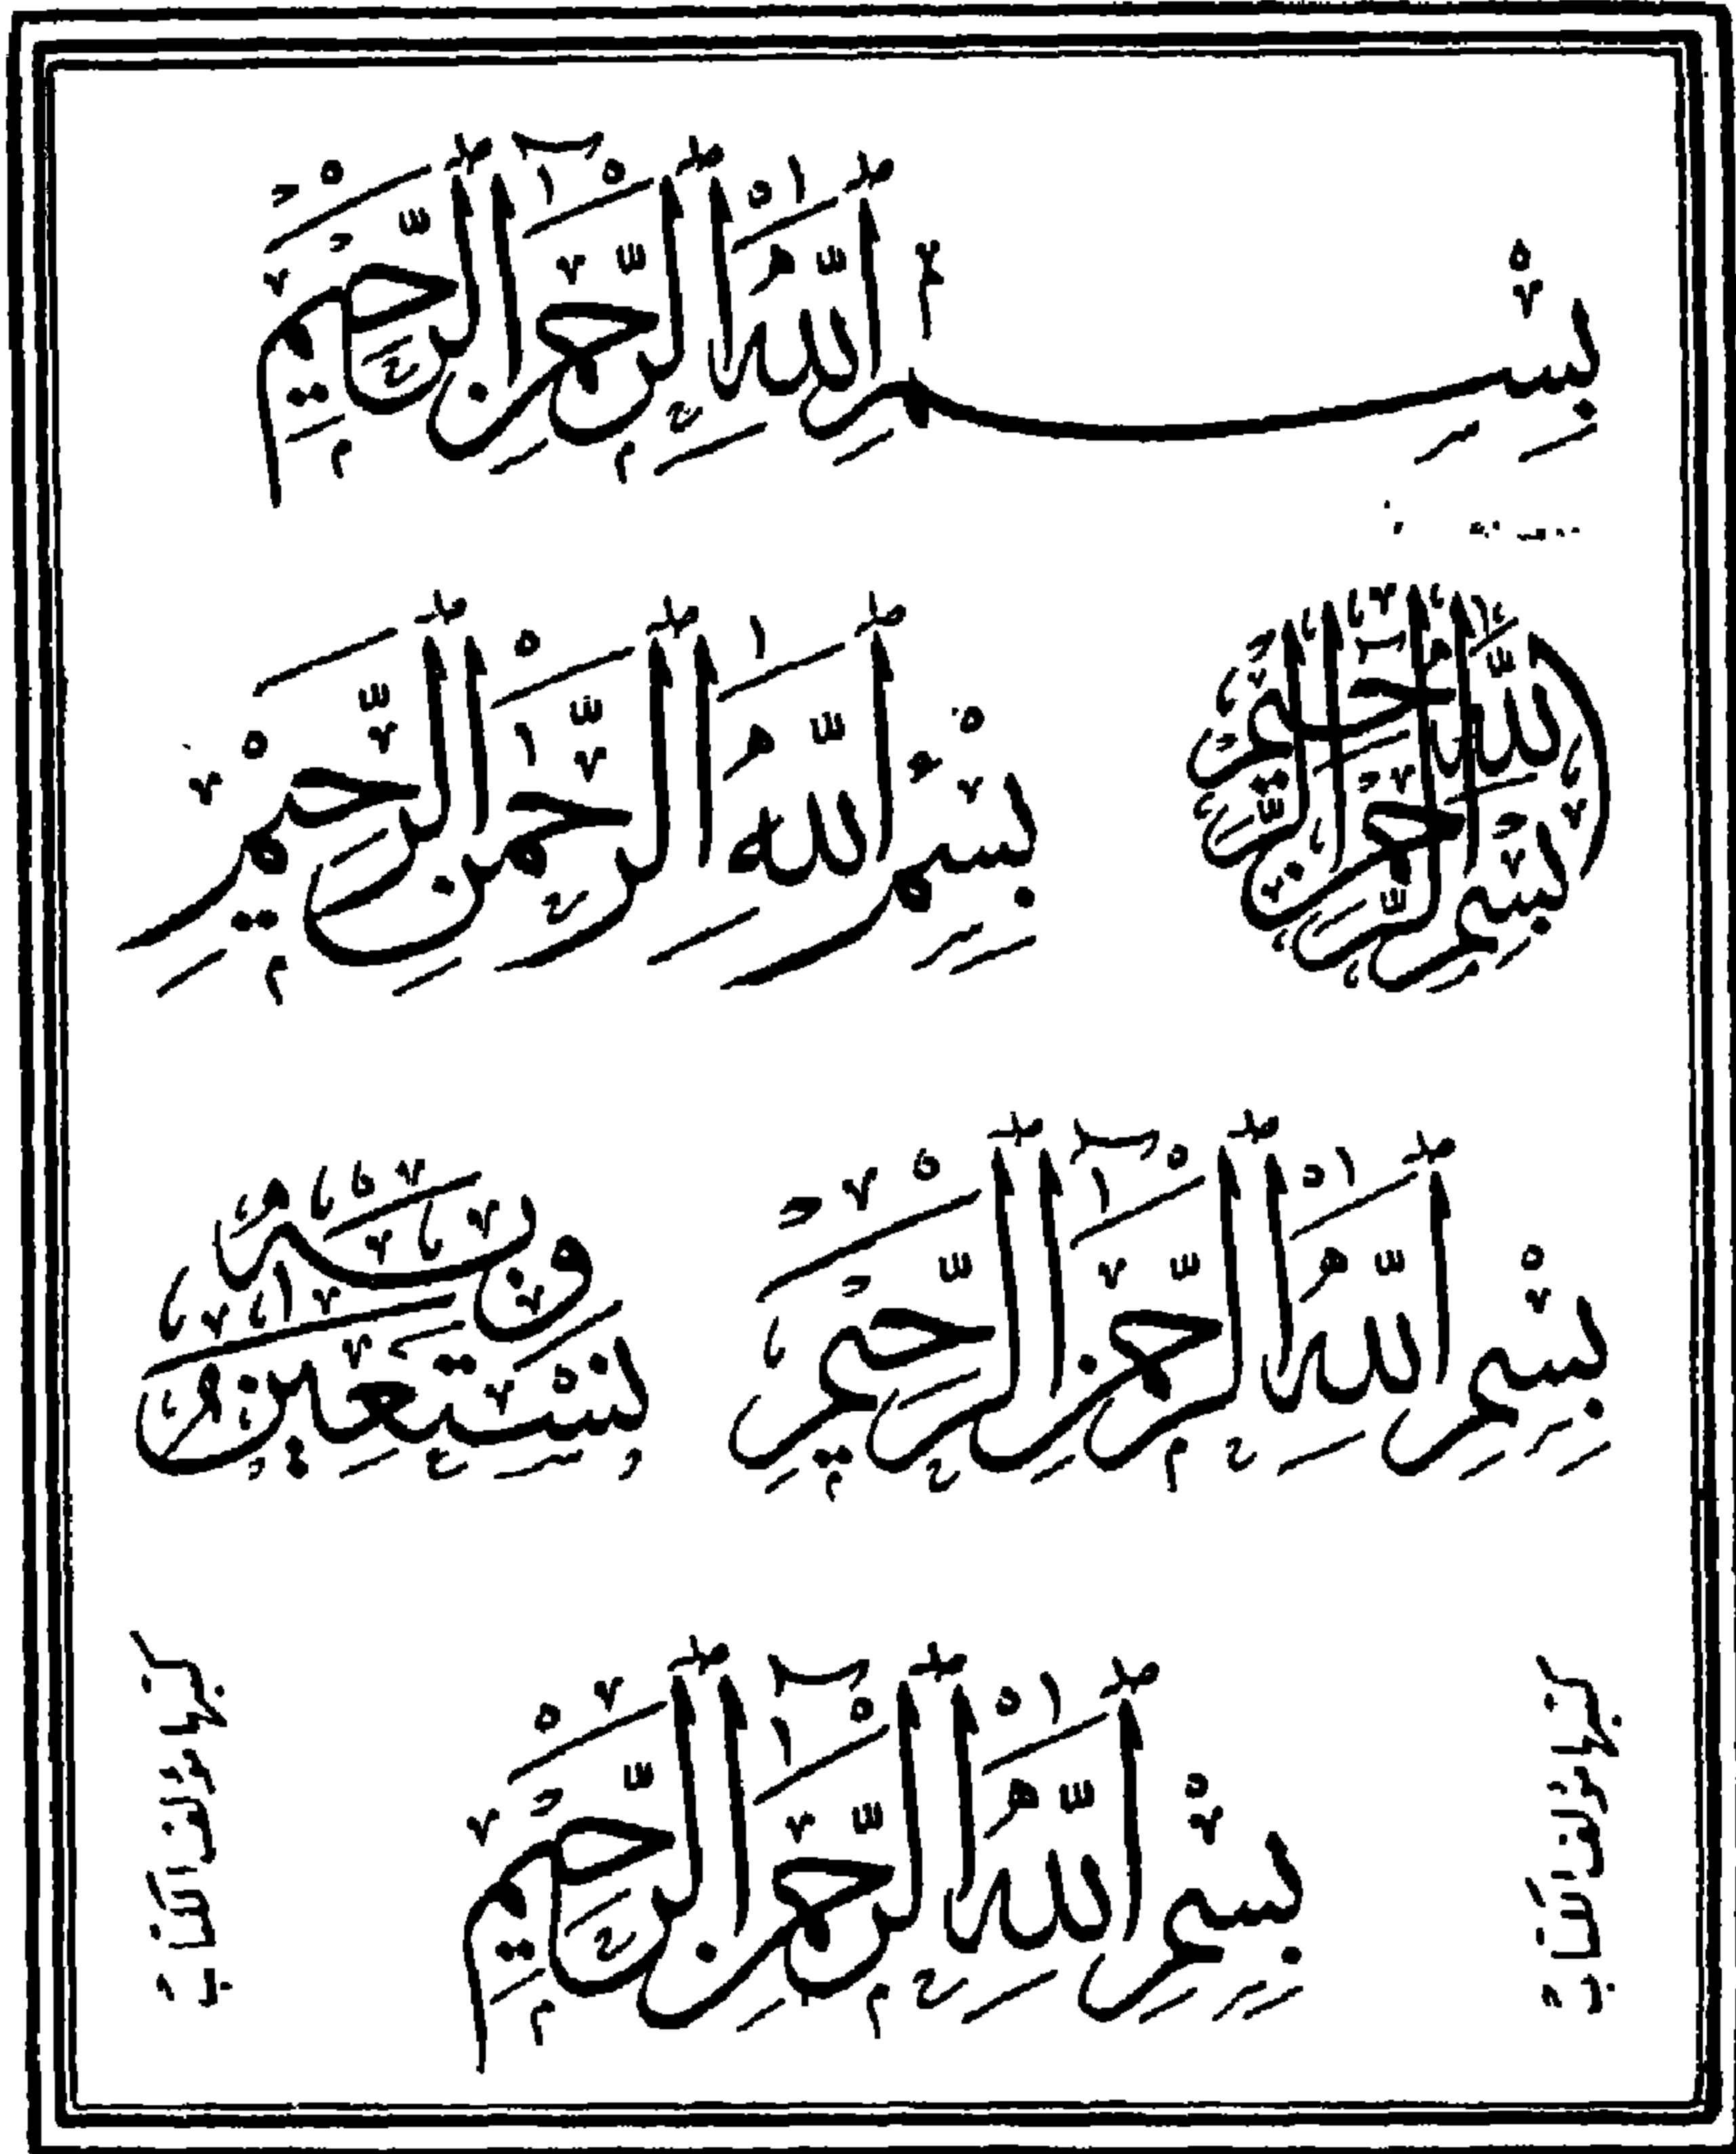 بِسْمِ ٱللَّهِ ٱلرَّحْمٰنِ ٱلرَّحِيمِ
بِسْمِ ٱللَّهِ ٱلرَّحْمٰنِ ٱلرَّحِيمِ
بِسْمِ ٱللَّهِ ٱلرَّحْمٰنِ ٱلرَّحِيمِ
بِسْمِ ٱللَّهِ ٱلرَّحْمٰنِ ٱلرَّحِيمِ
وَبِهِ نَسْتَعِينُ
بِسْمِ ٱللَّهِ ٱلرَّحْمٰنِ ٱلرَّحِيمِ